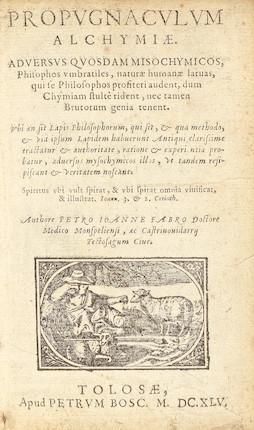 PROPVGNACVLVM
ALCHYMIÆ.
ADVERSVS QVOSDAM MISOCHYMICOS,
Philosophos vmbratiles, naturæ humanæ laruas,
qui se Philosophos profiteri audent, dum
Chymiam stultè rident, nec tamen
Brutorum genia tenent.
Vbi an sit Lapis Philosophorum, quis sit, & qua methodo,
& via ipsum Lapidem habuerunt Antiqui, clarissimè
tractatur & authoritate, ratione & experientia pro-
batur, aduersus mysochymicos illos, vt tandem resi-
piscant & veritatem noscant.
Spiritus vbi vult spirat, & vbi spirat omnia viuificat,
& illustrat. Ioann. 3. & 2. Corinth.
Authore PETRO IOANNE FABRO Doctore
Medico Monspeliensi, ac Castrinouidarry
Tectosagum Ciue.
TOLOSÆ,
Apud PETRVM BOSC. M. DC. XLV.